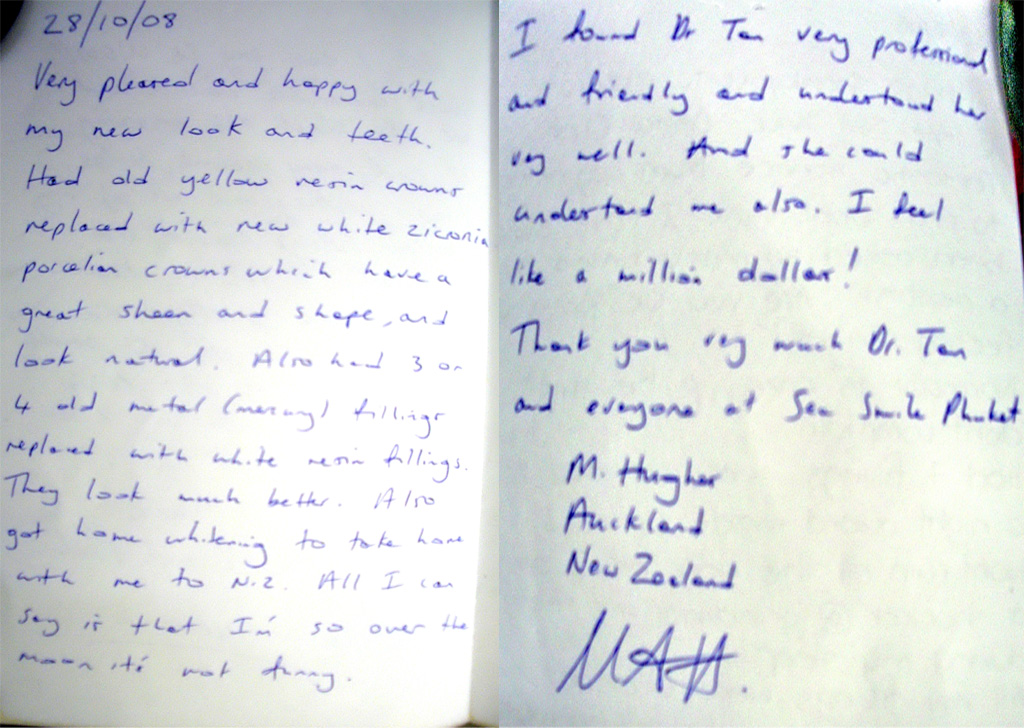 28/10/08
Very pleased and happy with
my new look and teeth.
Had old yellow resin crowns
replaced with new white zicronia
porcelian crowns which have a
great sheen and shape, and
look natural. Also had 3 or
4 old metal (mercury) fillings
replaced with white resin fillings.
They look much better. Also
got home whitening to take home
with me to N.Z. All I can
say is that I'm so over the
moon it's not funny.
I found Dr Tan very professional
and friendly and understand her
very well. And she could
understand me also. I feel
like a million dollars!
Thank you very much Dr. Tan
and everyone at Sea Smile Phuket
M. Hughes
Auckland
New Zealand